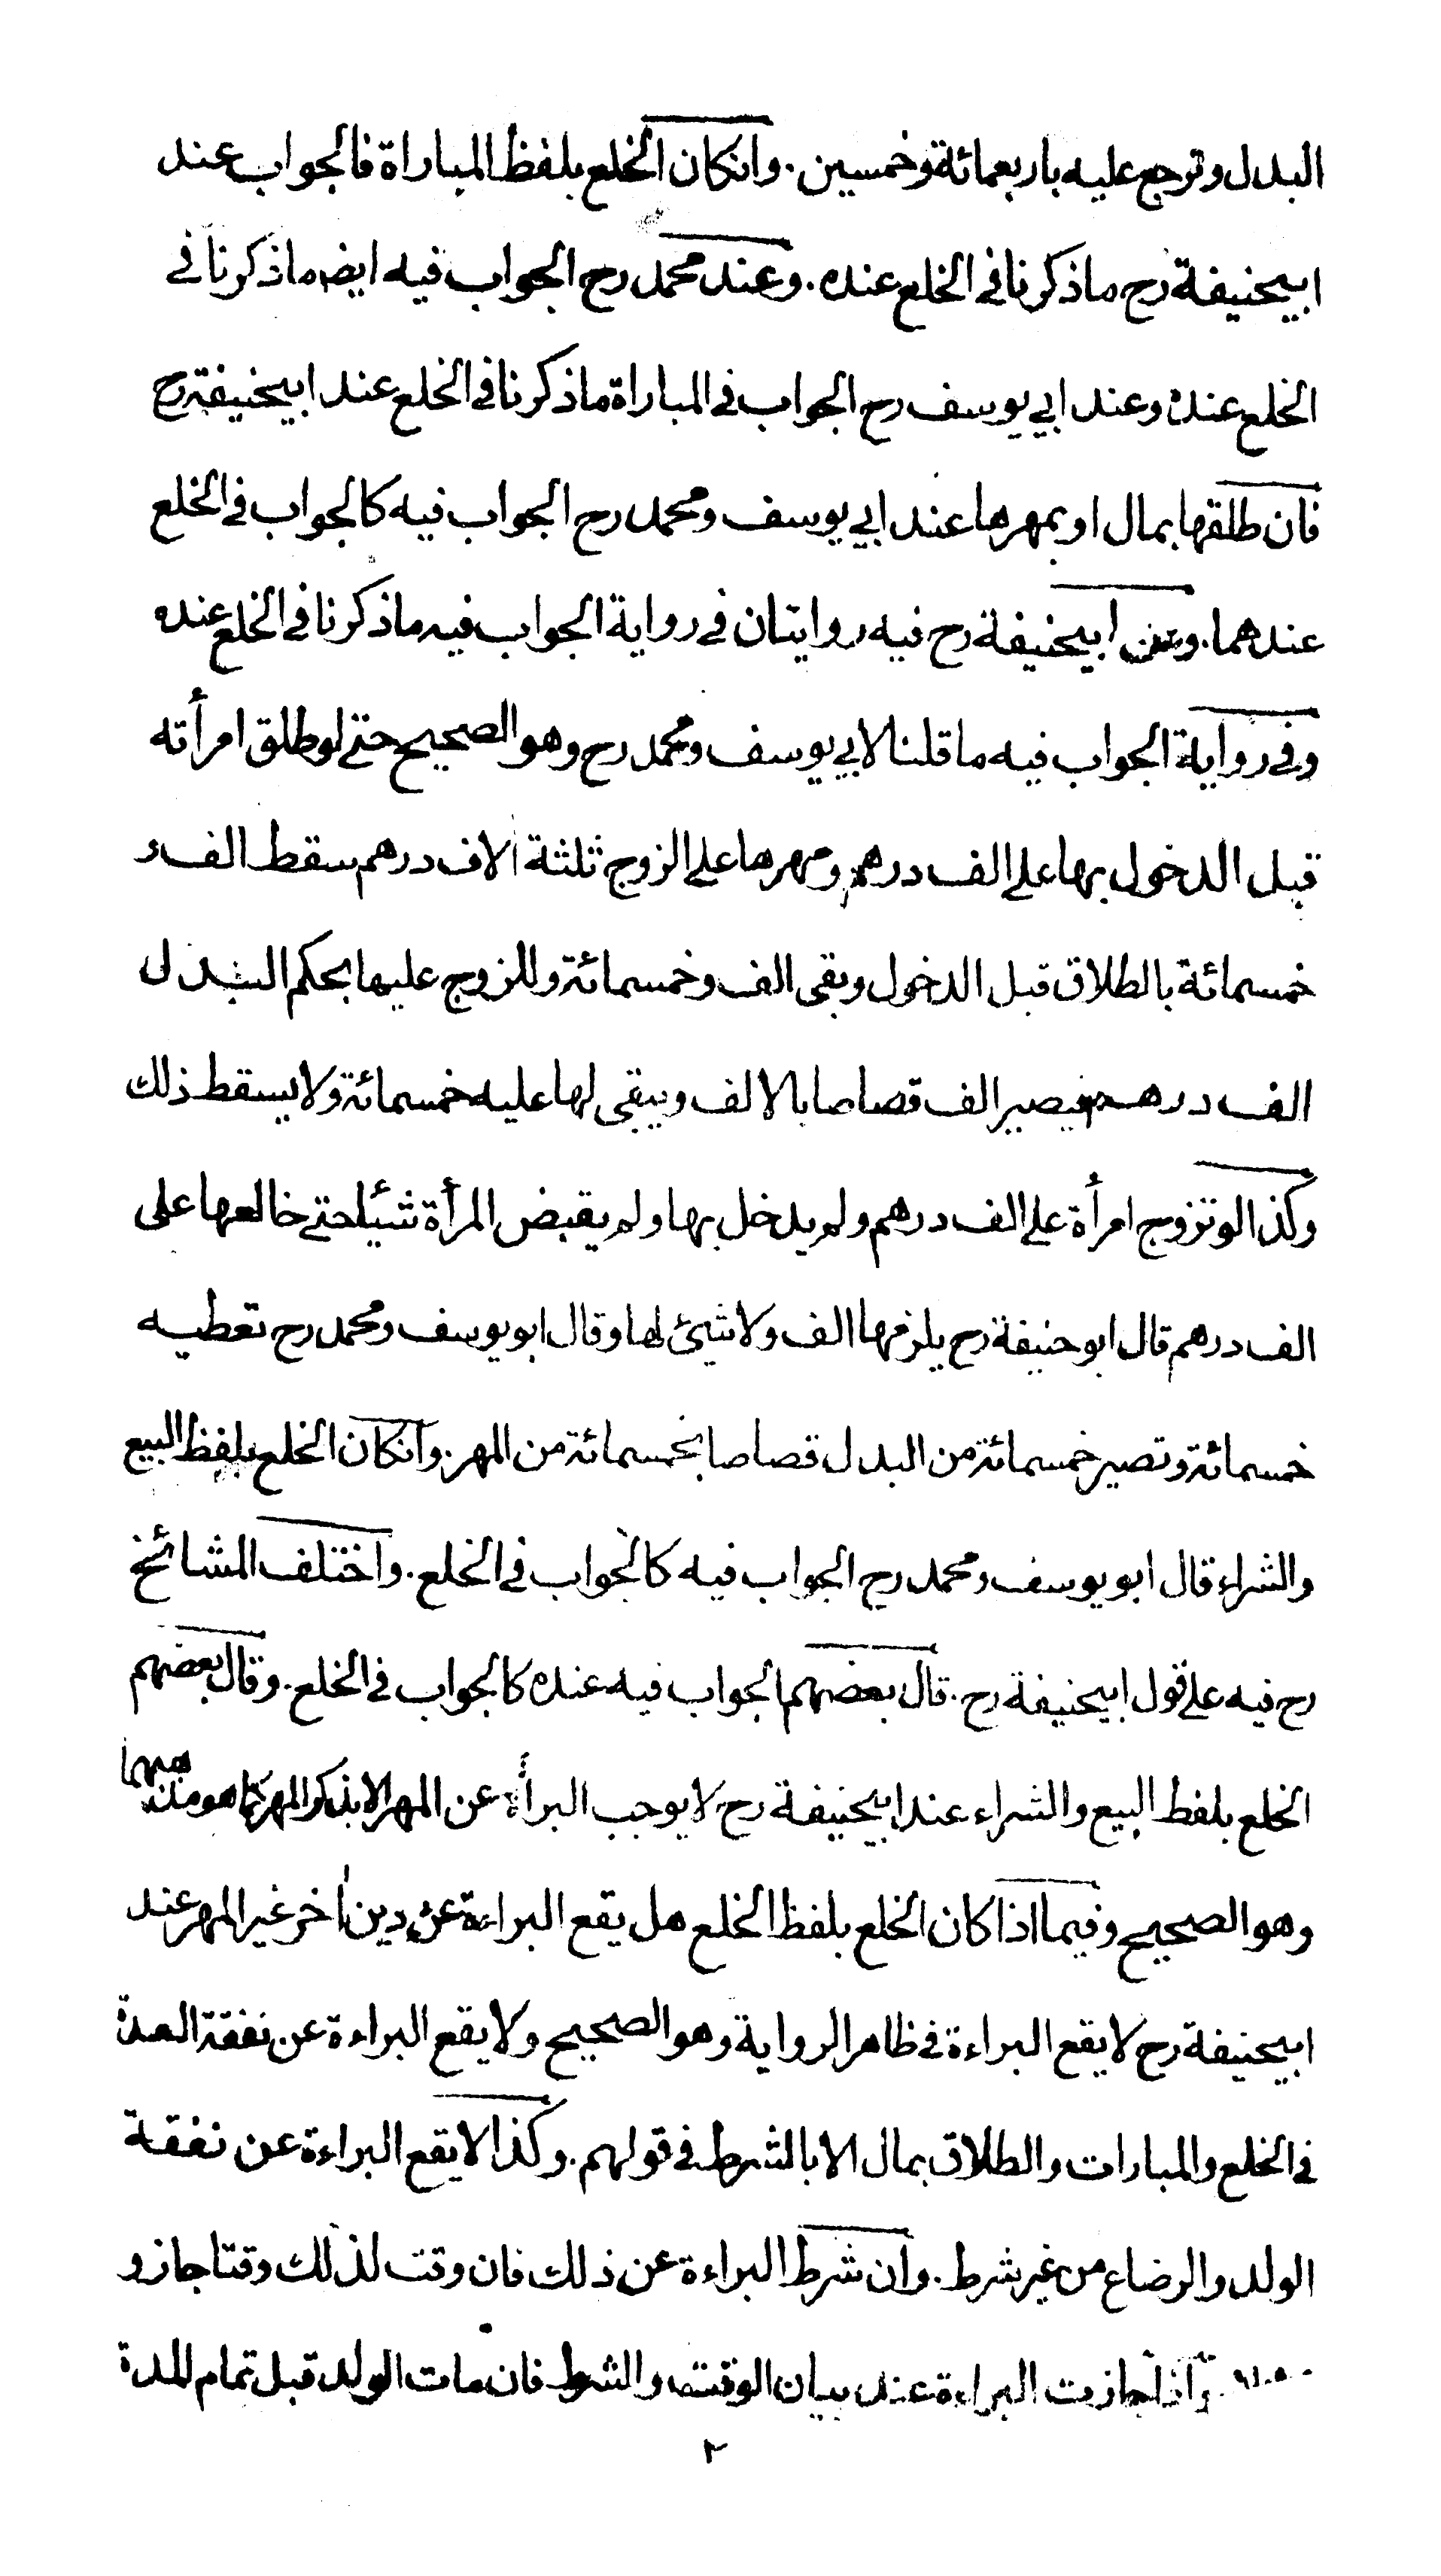 البدل وترجع عليه باربعمائة وخمسين. وانكان الخلع بلفظ المباراة فالجواب عند
ابيحنيفة رح ماذكرنا في الخلع عنده. وعند محمد رح الجواب فيه ايضا ماذكرنا في
الخلع عنده وعند ابي يوسف رح الجواب في المباراة ماذكرنا في الخلع عند ابيحنيفة رح
فان طلقها بمال او بمهرها عند ابي يوسف ومحمد رح الجواب فيه كالجواب في الخلع
عندهما. وعن ابيحنيفة رح فيه روايتان في رواية الجواب فيه ماذكرنا في الخلع عنده
وفي رواية الجواب فيه ما قلنا لابي يوسف ومحمد رح وهو الصحيح حتى لو طلق امرأته
قبل الدخول بها على الف درهم ومهرها على الزوج ثلثة الاف درهم سقط الف و
خمسمائة بالطلاق قبل الدخول وبقى الف وخمسمائة وللزوج عليها بحكم البدل
الف درهم فيصير الف قصاصا بالالف ويبقى لها عليه خمسمائة ولا يسقط ذلك
وكذا لو تزوج امرأة على الف درهم ولم يدخل بها ولم يقبض المرأة شيئا حتى خالعها على
الف درهم قال ابو حنيفة رح يلزمها الف ولا شيئ لها وقال ابو يوسف ومحمد رح تعطيه
خمسمائة وتصير خمسمائة من البدل قصاصا بخمسمائة من المهر. وانكان الخلع بلفظ البيع
والشراء قال ابو يوسف ومحمد رح الجواب فيه كالجواب في الخلع. واختلف المشائخ
رح فيه على قول ابيحنيفة رح. قال بعضهم الجواب فيه عنده كالجواب في الخلع. وقال بعضهم
الخلع بلفظ البيع والشراء عند ابيحنيفة رح لا يوجب البرأة عن المهر الا بذكر المهر كما هو مذهبهما
وهو الصحيح وفيما اذا كان الخلع بلفظ الخلع هل يقع البراءة عن دين أخر غير المهر عند
ابيحنيفة رح لا يقع البراءة في ظاهر الرواية وهو الصحيح ولا يقع البراءة عن نفقة العدة
في الخلع والمبارات والطلاق بمال الا بالشرط في قولهم. وكذا لا يقع البراءة عن نفقة
الولد والرضاع من غير شرط. وان شرط البراءة عن ذلك فان وقت لذلك وقتا جاز و
واذا جازت البراءة عند بيان الوقت والشرط فان مات الولد قبل تمام المدة
٢